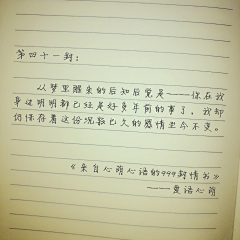 第四十一封：
从梦里醒来的后知后觉是——你在我
身边明明都已经是好多年前的事了，我却
仍保存着这份沉寂已久的感情至今不变。
《来自心萌心语的999封情书》
——蔓语心萌